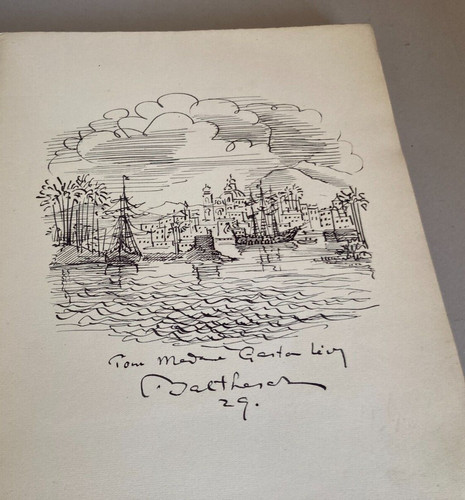 Pour Madame Gaston Lévy
29.